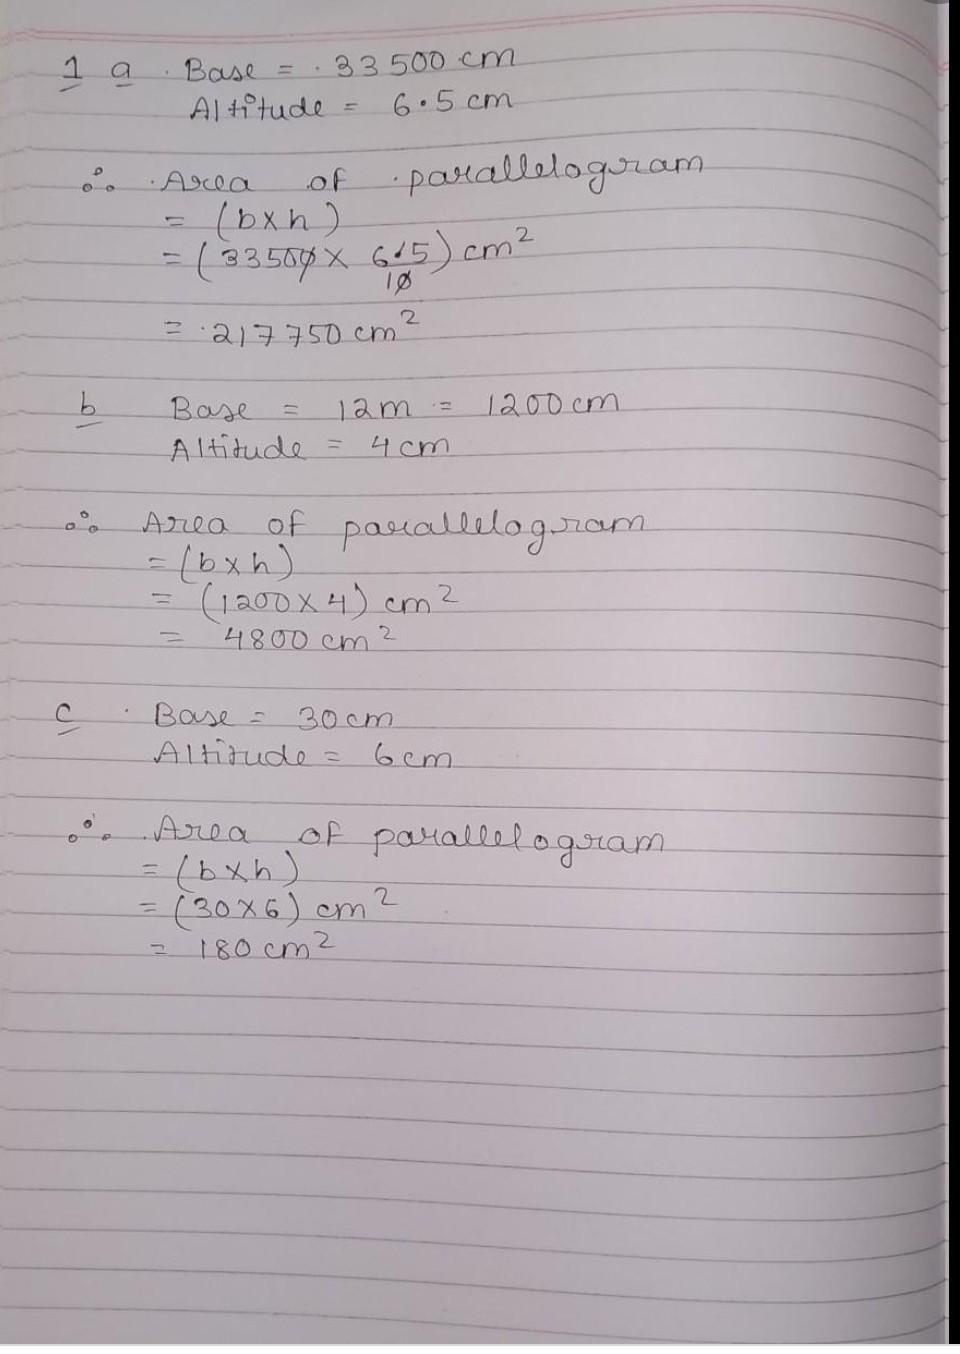 1 a Base = 33500 cm
Altitude = 6.5 cm
∴ Area of parallelogram
= (b×h)
= (33500 × 6.5) cm²
10
= 217750 cm²
b Base = 12m = 1200 cm
Altitude = 4 cm
∴ Area of parallelogram
= (b×h)
= (1200×4) cm²
= 4800 cm²
c Base = 30 cm
Altitude = 6 cm
∴ Area of parallelogram
= (b×h)
= (30×6) cm²
= 180 cm²